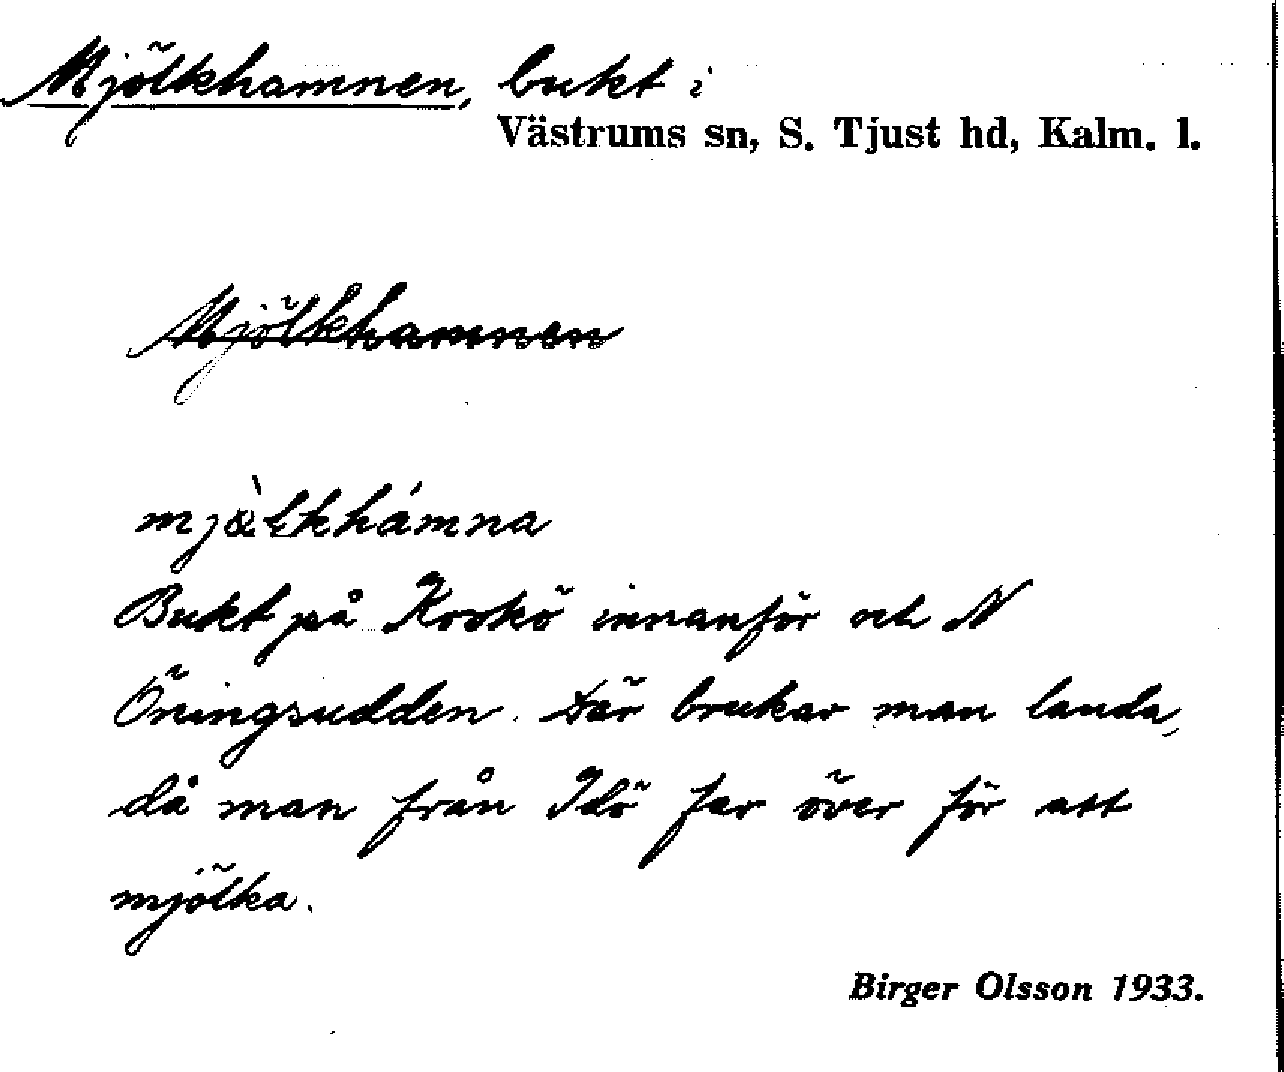 Mjölkhamnen, bukt i
Västrums sn, S. Tjust hd, Kalm. l.
Mjölkhamnen
Bukt på Krokö innanför och N
Öningsudden. Där brukar man landa,
då man från Idö far över för att
mjölka.
Birger Olsson 1933.